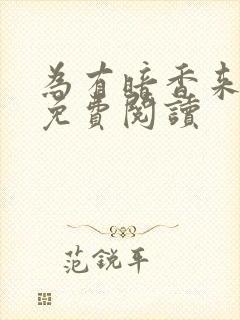 為有暗香来
免費閱讀
范銳平